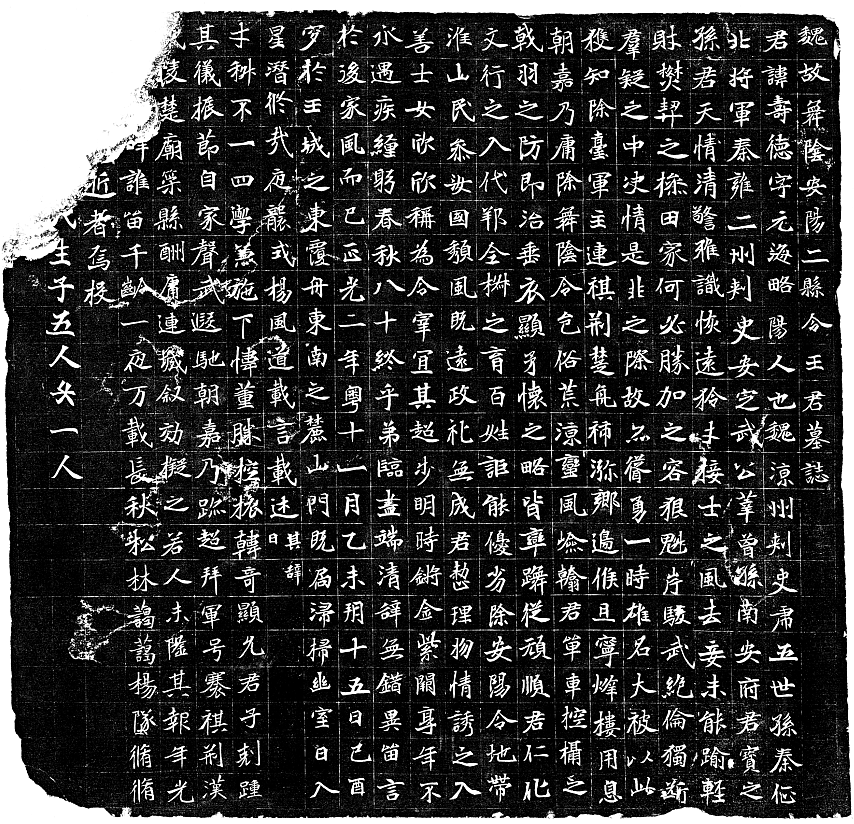 魏故舞陰安陽二縣令王君墓誌
君諱壽德字元海略陽人也魏涼州刾史肅五世孫秦征
北將軍秦雍二州刾史安定武公華曾孫南安府君寳之
孫君天情清警雅識恢遠矜才接士之風去妾未能踰輕
財樊契之操田家何必勝加之容狠魁岸駿武絶倫獨斷
羣疑之中决情是非之際故不聳勇一時雄名大被以此
獲知除臺軍主連祺荆楚氛祲弥鄉過候且寧烽樓用息
朝嘉乃庸除舞陰令包俗荒凉蠻風尒翰君單車控攝乏
戟羽之防即治垂衣顯矛懷之略皆率躋從頑順君仁化
文行之入代邦全㭊之育百姓詎能優劣除安陽令地帶
淮山民忝汝囯頽風既遠政礼無成君慗理物情誘之入
善士女欣欣稱為令宰冝其超步明時鏘金紫闥享年不
永遇疾纏躬春秋八十終乎弟臨盡端清辞無錯異笛言
於後家風而已正光二年粤十一月乙未朔十五日己酉
穸於王城之東霞舟東南之麓山門既扃涕掃幽室日入
星潛終𭑈夜朧式楊風道載言載述曰其辞
才枓不一四學兼施下愇董胅控振韓奇顯允君子刻踵
其儀振莭自家聲武遐馳朝嘉乃蹤超拜軍号騫祺荆漢
陵楚廟㭗縣酬庸連瓛叙効擬之若人未隆其報年光
誰笛千齡一夜万載長秋㭢林藹藹楊隊脩脩
近者焉校
生子五人女一人